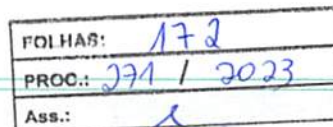 FOLHAS: 172
PROC.: 271 / 2023
Ass.: